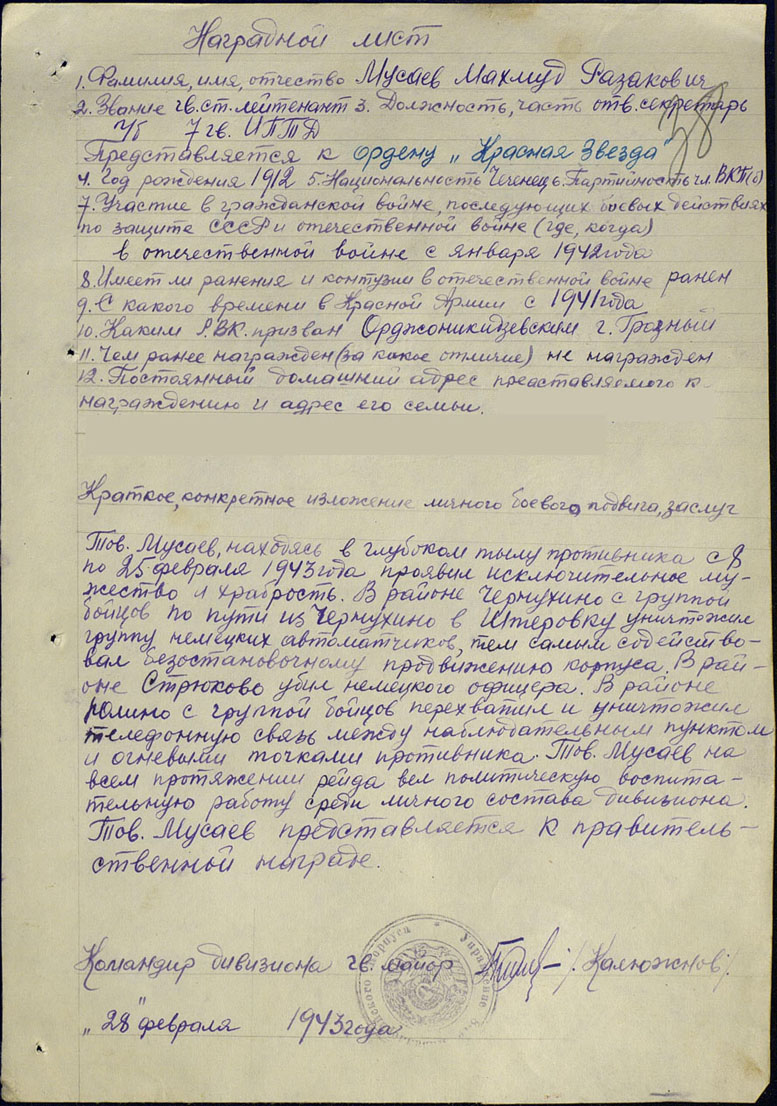 Наградной лист
1. Фамилия, имя, отчество Мусаев Махмуд Разакович
2. Звание гв. ст. лейтенант 3. Должность, часть отв. секретарь
7 гв. ИПТД
38
Представляется к ордену „Красная Звезда"
4. Год рождения 1912 5. Национальность Чеченец 6. Партийность чл. ВКП(б)
7. Участие в гражданской войне, последующих боевых действиях
по защите СССР и отечественной войне (где, когда)
в отечественной войне с января 1942 года
8. Имеет ли ранения и контузии в отечественной войне ранен
9. С какого времени в Красной Армии с 1941 года
10. Каким РВК призван Орджоникидзевским г. Грозный
11. Чем ранее награжден (за какое отличие) не награжден
12. Постоянный домашний адрес представляемого к
награждению и адрес его семьи.
Краткое, конкретное изложение личного боевого подвига, заслуг
Тов. Мусаев, находясь в глубоком тылу противника с 8
по 25 февраля 1943 года проявил исключительное му-
жество и храбрость. В районе Чернухино с группой
бойцов по пути из Чернухино в Штеровку уничтожил
группу немецких автоматчиков, тем самым содейство-
вал безостановочному продвижению корпуса. В рай-
оне Стрюково убил немецкого офицера. В районе
с группой бойцов перехватил и уничтожил
телефонную связь между наблюдательным пунктом
и огневыми точками противника. Тов. Мусаев на
всем протяжении рейда вел политическую воспита-
тельную работу среди личного состава дивизиона.
Тов. Мусаев представляется к правитель-
ственной награде.
Командир дивизиона гв. майор /Калюжнов/
„28" февраля 1943 года